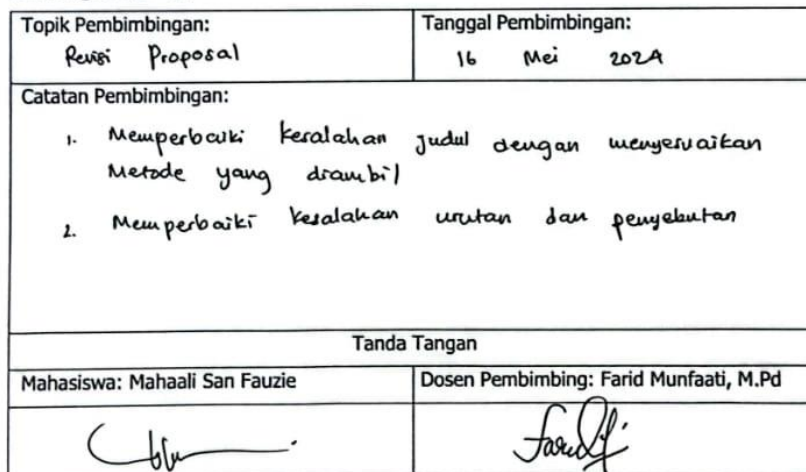 Topik Pembimbingan:
Revisi Proposal
Tanggal Pembimbingan:
16 Mei 2024
Catatan Pembimbingan:
1. Memperbaiki kesalahan judul dengan menyesuaikan
Metode yang diambil
2. Memperbaiki kesalahan urutan dan penyebutan
Tanda Tangan
Mahasiswa: Mahaali San Fauzie
Dosen Pembimbing: Farid Munfaati, M.Pd